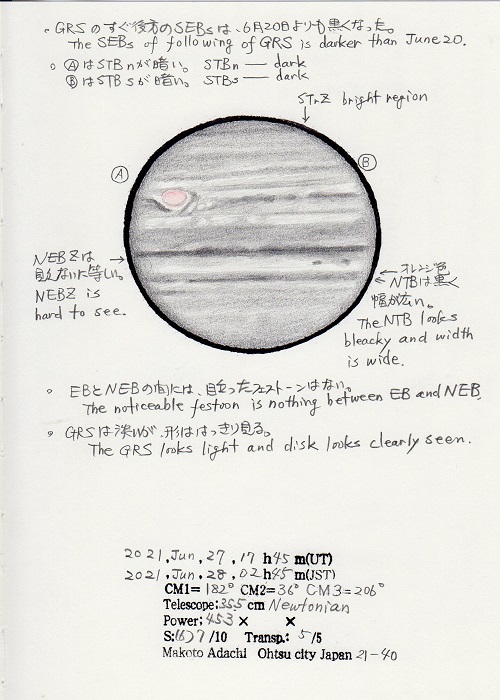 。GRSのすぐ後方のSEBsは、6月20日よりも黒くなった。
The SEBs of following of GRS is darker than June 20.
。ⒶはSTBnが暗い。 STBn — dark
ⒷはSTBsが暗い。 STBs — dark
STrZ bright region
Ⓐ
Ⓑ
NEBZは
見えないに等しい。
NEBZ is
hard to see.
オレンジ色
NTBは黒く
幅が広い。
The NTB looks
bleacky and width
is wide.
。EBとNEBの間には、目立ったフェストーンはない。
The noticeable festoon is nothing between EB and NEB.
。GRSは淡いが、形ははっきり見る。
The GRS looks light and disk looks clearly seen.
2021, Jun, 27, 17 h45 m(UT)
2021, Jun, 28, 02 h45 m(JST)
CM1= 182° CM2= 36° CM3=206°
Telescope: 35.5 cm Newtonian
Power; 453 × ×
S:(6)7/10 Transp.: 5/5
Makoto Adachi Ohtsu city Japan 21-40